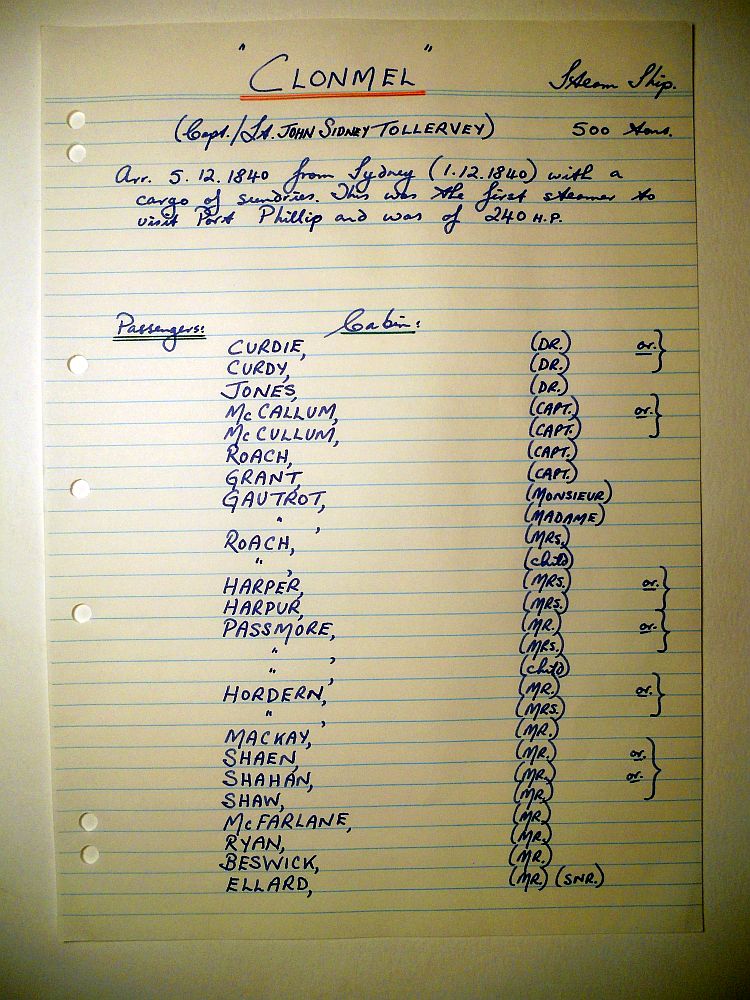 " CLONMEL " Steam Ship.
(Capt./Lt. JOHN SIDNEY TOLLERVEY) 500 tons.
Arr. 5.12.1840 from Sydney (1.12.1840) with a
cargo of sundries. This was the first steamer to
visit Port Phillip and was of 240 H.P.
Passengers: Cabin:
CURDIE, (DR.) or. }
CURDY, (DR.)
JONES, (DR.)
McCALLUM, (CAPT.) or. }
McCULLUM, (CAPT.)
ROACH, (CAPT.)
GRANT, (CAPT.)
GAUTROT, (MONSIEUR)
" , (MADAME)
ROACH, (MRS.)
" , (child)
HARPER, (MRS.) or. }
HARPUR, (MRS.)
PASSMORE, (MR.) or. }
" , (MRS.)
" , (child)
HORDERN, (MR.) or. }
" , (MRS.)
MACKAY, (MR.)
SHAEN, (MR.) or. }
SHAHAN, (MR.) or.
SHAW, (MR.)
McFARLANE, (MR.)
RYAN, (MR.)
BESWICK, (MR.)
ELLARD, (MR.) (SNR.)